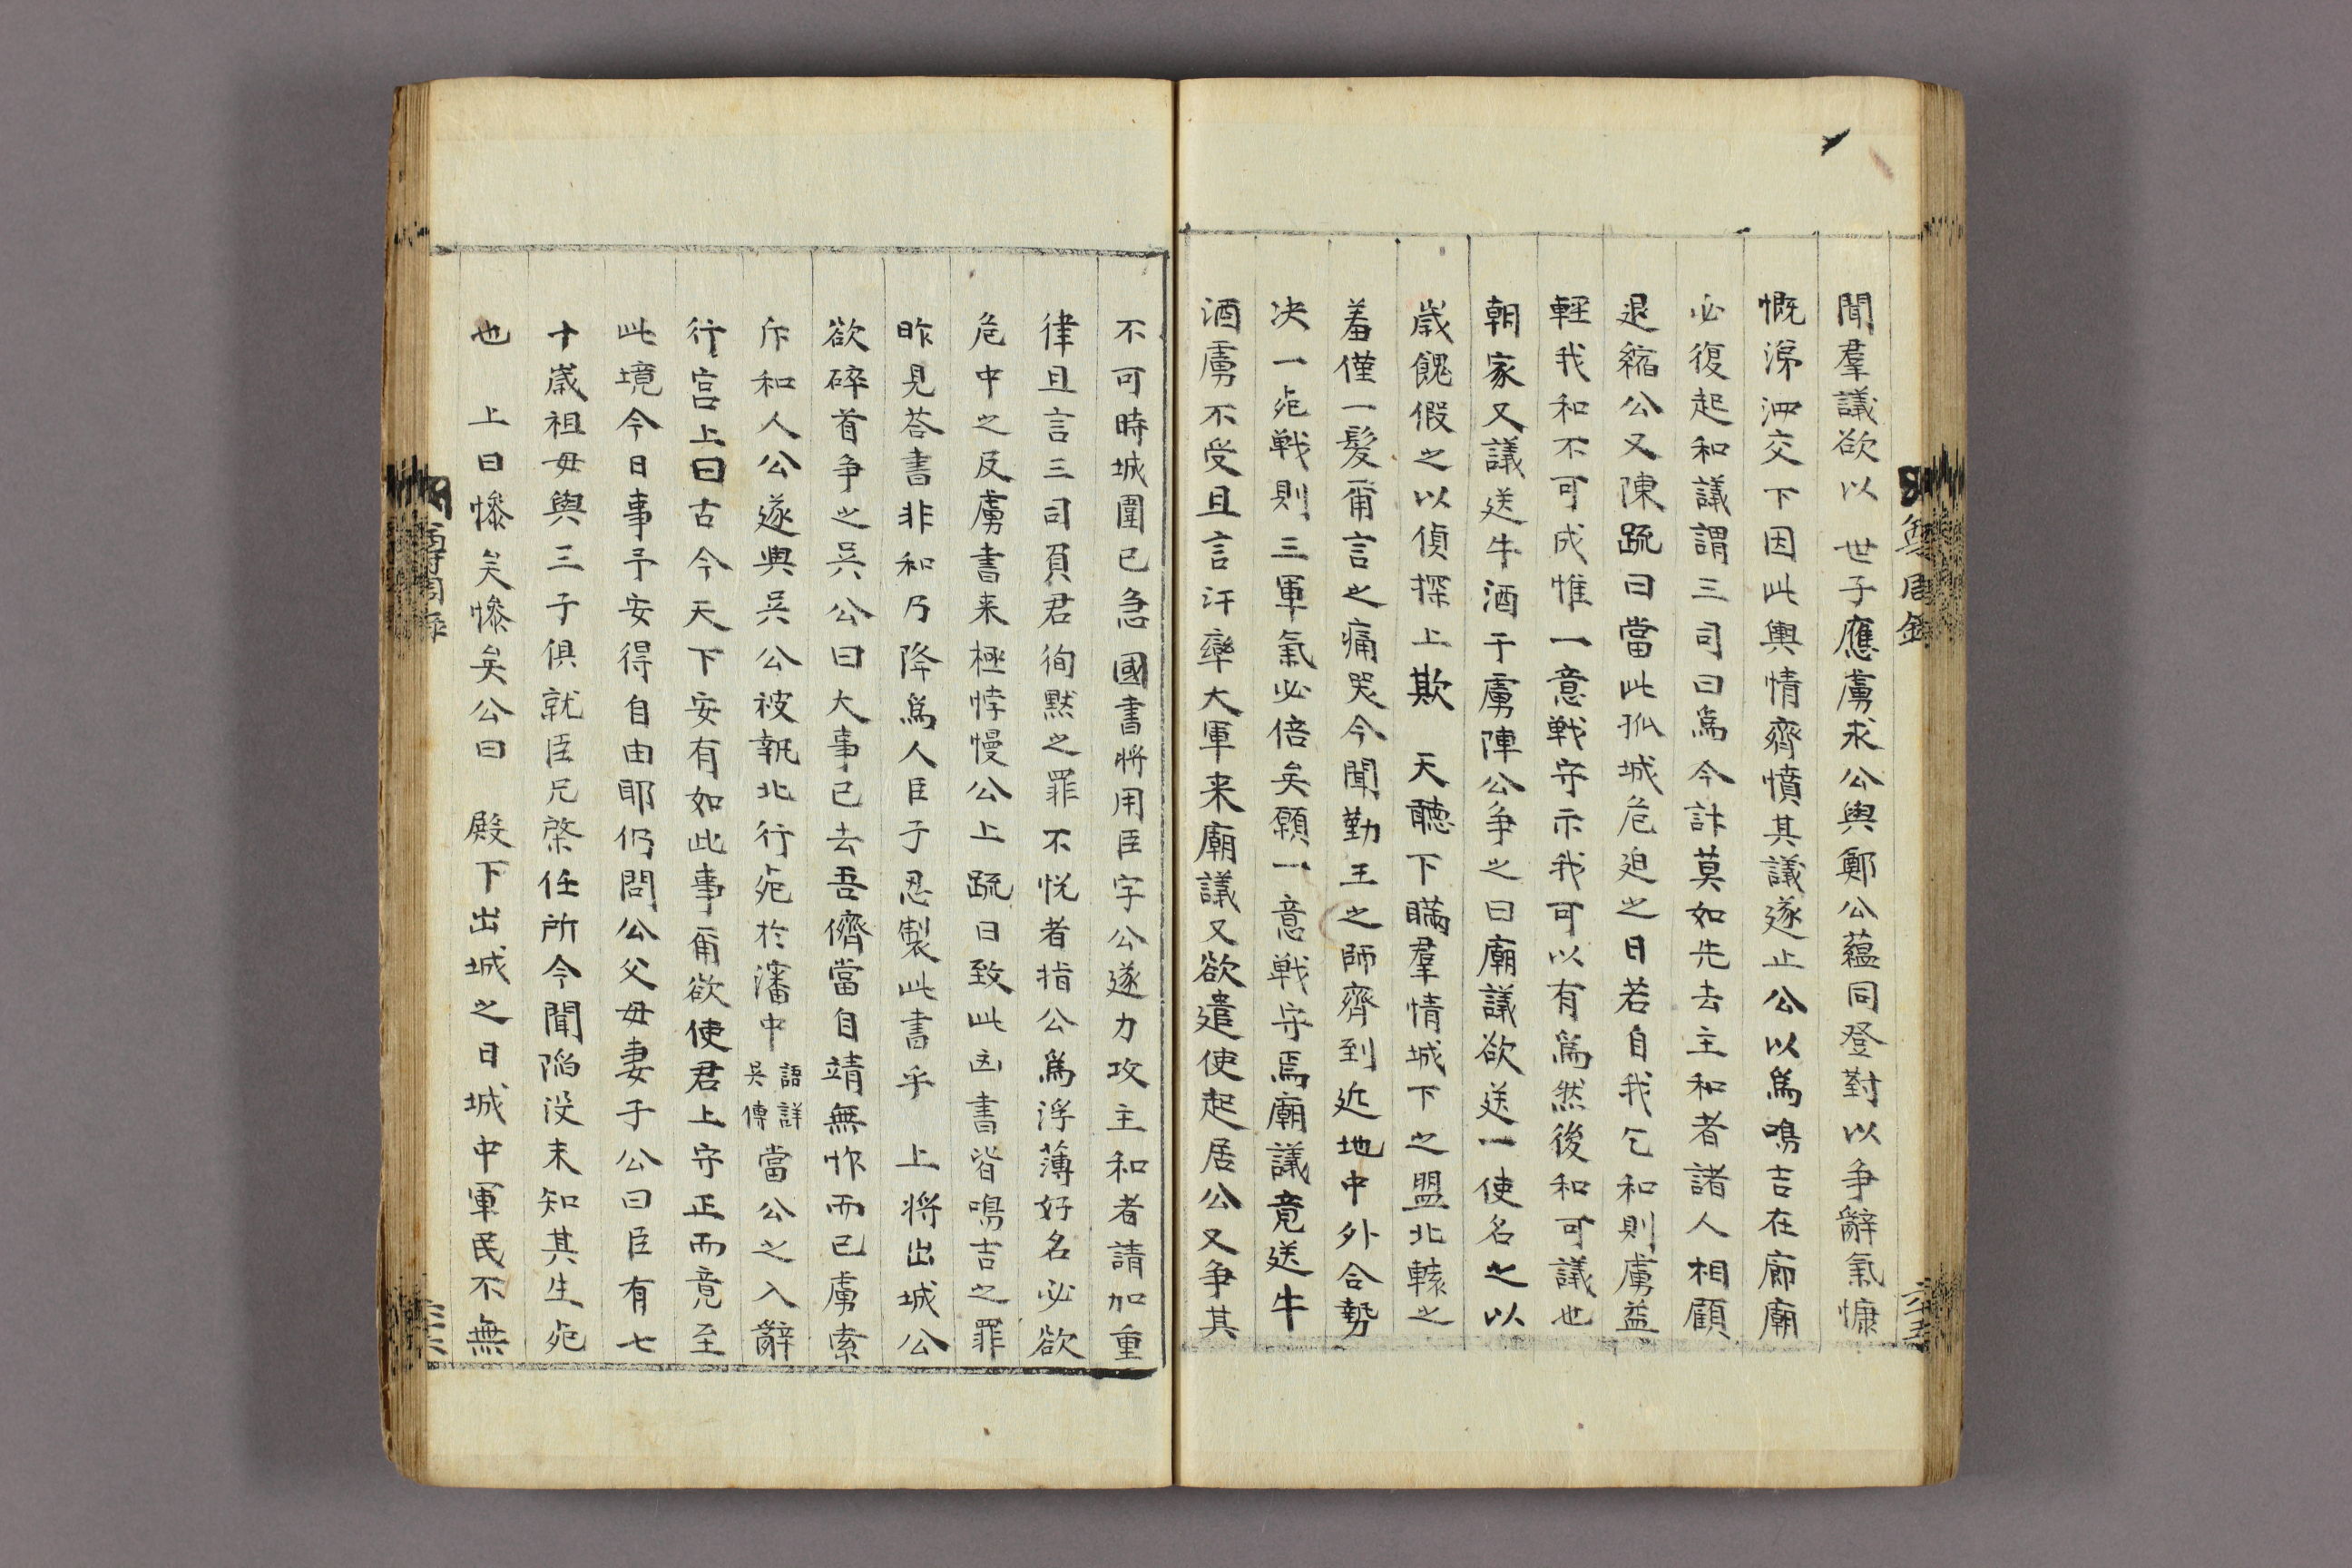 聞羣議欲以 世子應虜求公與鄭公蘊同登對以争辭氣慷
慨涕泗交下因此輿情齊憤其議遂止公以為鳴吉在廊廟
必復起和議謂三司曰為今計莫如先去主和者諸人相顧
退縮公又陳疏曰當此孤城危迫之日若自我乞和則虜益
輕我和不可成惟一意戰守示我可以有為然後和可議也
朝家又議送牛酒于虜陣公争之曰廟議欲送一使名之以
歲餽假之以偵探上欺 天聽下瞞羣情城下之盟北轅之
羞僅一髮甭言之痛哭今聞勤王之師齊到近地中外合勢
决一死戰則三軍氣必倍矣願一意戰守焉廟議竟送牛
酒虜不受且言汗率大軍来廟議又欲遣使起居公又争其
不可時城圍已急國書將用臣字公遂力攻主和者請加重
律且言三司負君徇默之罪不悅者指公為浮薄好名必欲
危中之及虜書来極悖慢公上疏曰致此凶書皆鳴吉之罪
昨見荅書非和乃降為人臣子忍製此書乎 上將出城公
欲碎首争之吳公曰大事已去吾儕當自靖無怍而已虜索
斥和人公遂與吳公被執北行死於瀋中語詳吳傳當公之入辭
行宮上曰古今天下安有如此事甭欲使君上守正而竟至
此境今日事予安得自由耶仍問公父母妻子公曰臣有七
十歲祖母與三子俱就臣兄棨任所今聞陷没未知其生死
也 上曰慘矣慘矣公曰 殿下出城之日城中軍民不無
尊周錄
六十五
尊周錄
六十六